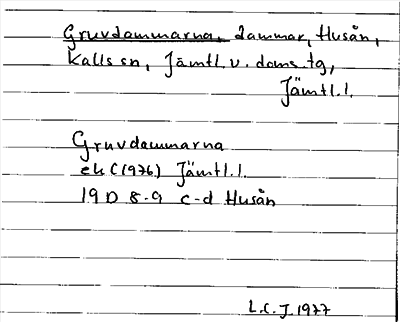 Gruvdammarna, dammar, Husån,
Kalls sn, Jämtl. v. doms. tg,
Jämtl. l.
Gruvdammarna
ek C (1976) Jämtl. l.
19 D 8-9 c-d Husån
L.C.J. 1977